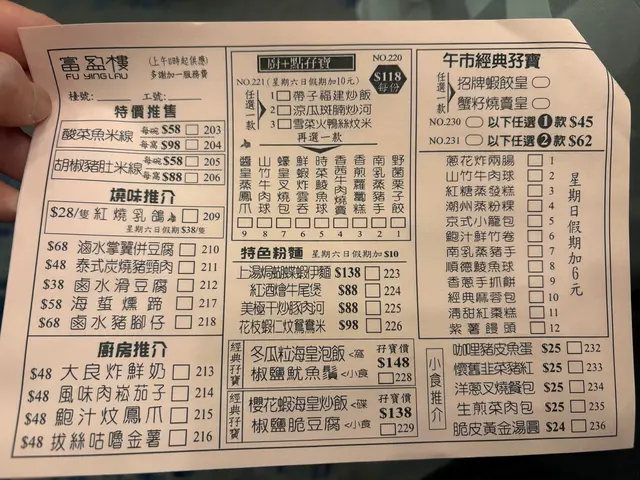 富盈樓
FU YING LAU
(上午11時起供應)
多謝加一服務費
檯號: 工號:
特價推售
酸菜魚米線 每碗 $58 203
每窩 $98 204
胡椒豬肚米線 每碗 $58 205
每窩 $88 206
燒味推介
$28/隻 紅燒乳鴿 209
星期六日假期$38/隻
$68 滷水掌翼併豆腐 210
$48 泰式炭燒豬頸肉 211
$38 鹵水滑豆腐 212
$58 海蜇燻蹄 217
$68 鹵水豬腳仔 218
廚房推介
$48 大良炸鮮奶 213
$48 風味肉崧茄子 214
$48 鮑汁炆鳳爪 215
$48 拔絲咕嚕金薯 216
NO.220
NO.221 (星期六日假期加10元)
$118
每份
任選一款
1 帶子福建炒飯
2 涼瓜斑腩炒河
3 雪菜火鴨絲炆米
再選一款
野菌栗子餃 1
南乳蒸豬手 2
香煎蘿蔔糕 3
香茜牛肉燒賣 4
時菜鯪魚球 5
鮮蝦雲吞 6
蠔皇叉燒飽 7
山竹牛肉球 8
醬皇蒸鳳爪 9
特色粉麵 星期六日假期加$10
上湯焗蝴蝶蝦伊麵 $138 223
紅酒燴牛尾煲 $88 224
美極干炒豚肉河 $88 225
花枝蝦仁炆鴛鴦米 $98 226
經典孖寶
冬瓜粒海皇泡飯<窩
椒鹽魷魚鬚<小食
孖寶價
$148
228
經典孖寶
櫻花蝦海皇炒飯<碟
椒鹽脆豆腐<小食
孖寶價
$138
229
午市經典孖寶
任選一款
招牌蝦餃皇
蟹籽燒賣皇
NO.230 以下任選1款 $45
NO.231 以下任選2款 $62
蔥花炸兩腸 1
山竹牛肉球 2
紅糖蒸發糕 3
潮州蒸粉粿 4
京式小籠包 5
鮑汁鮮竹卷 6
南乳蒸豬手 7
順德鯪魚球 8
香蔥手抓餅 9
經典麻蓉包 10
清甜紅棗糕 11
紫薯饅頭 12
星期日假期加6元
小食推介
咖哩豬皮魚蛋 $25 232
懷舊韭菜豬紅 $25 233
洋蔥叉燒餐包 $25 234
生煎菜肉包 $25 235
脆皮黃金湯圓 $24 236